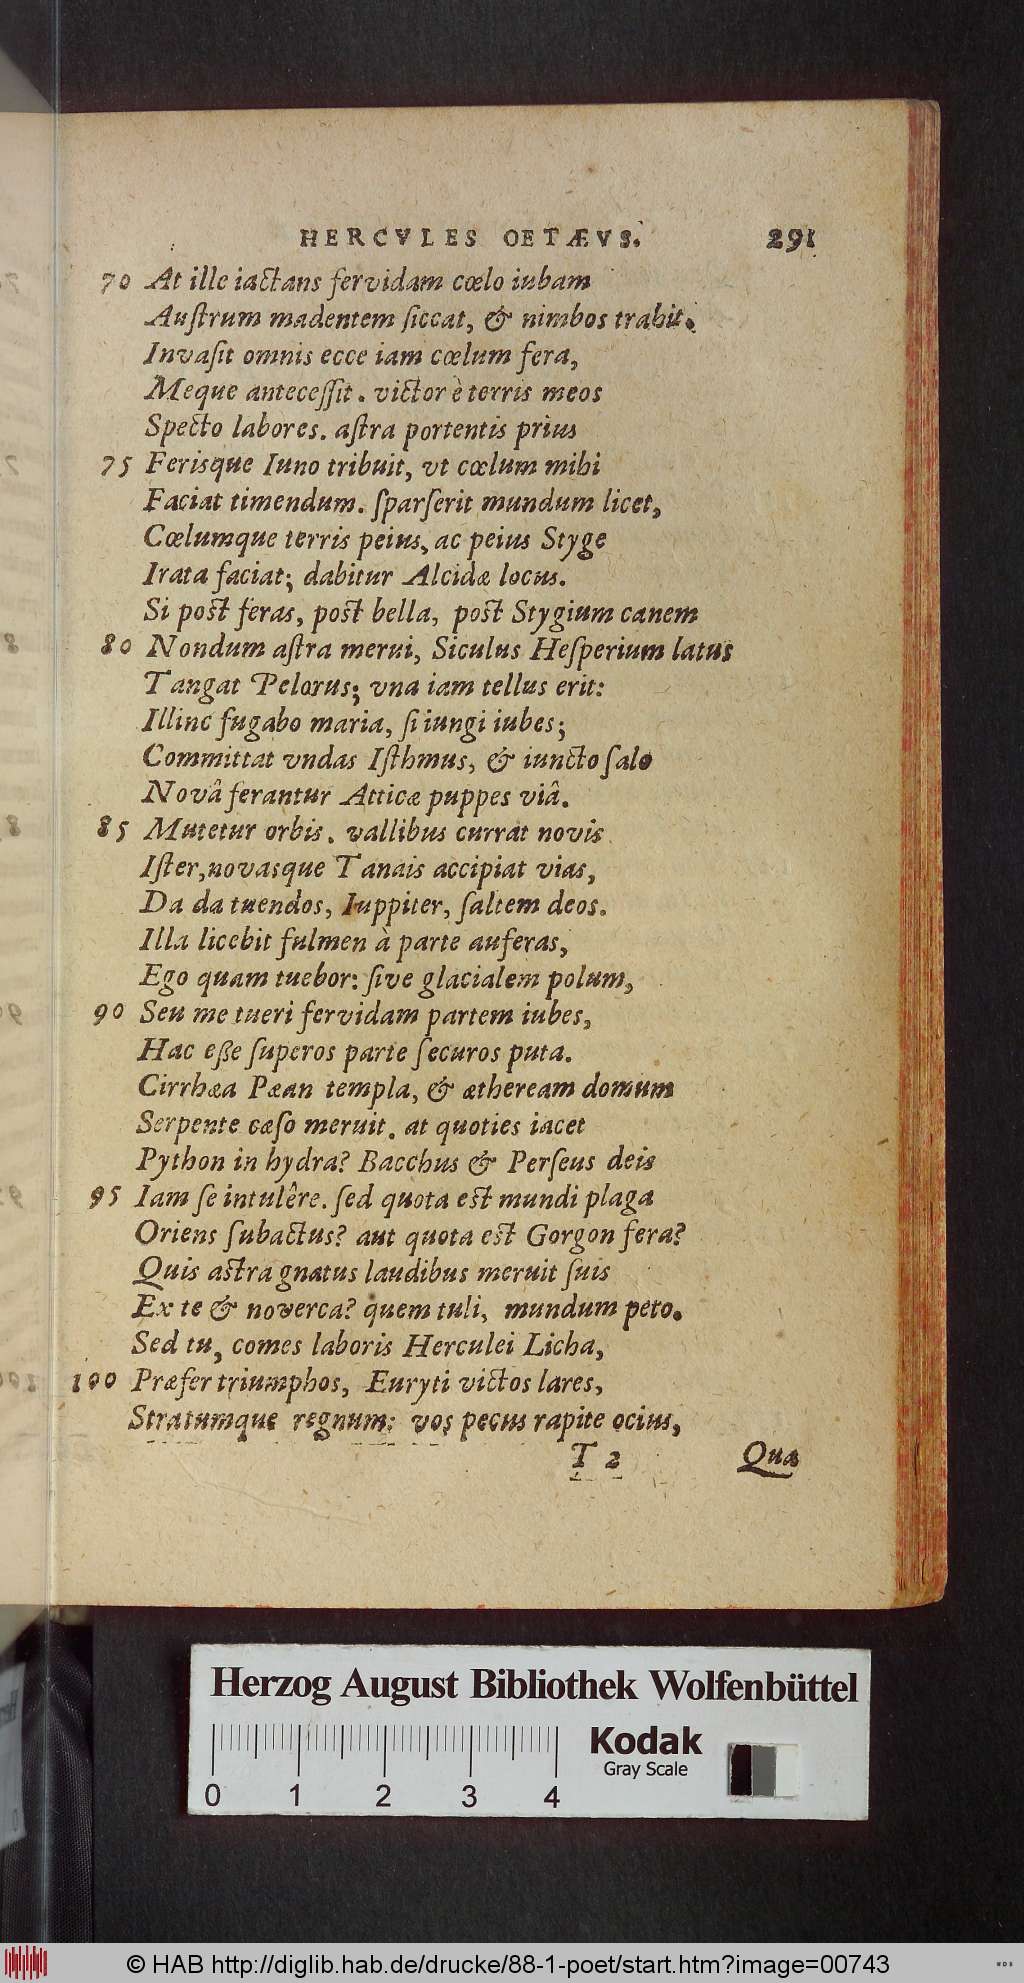 HERCVLES OETÆVS. 291
70 At ille iactans fervidam cœlo iubam
Auſtrum madentem ſiccat, & nimbos trahit.
Invaſit omnis ecce iam cœlum fera,
Meque anteceſſit. victor è terris meos
Specto labores. aſtra portentis prius
75 Feriſque Iuno tribuit, vt cœlum mihi
Faciat timendum. ſparſerit mundum licet,
Cœlumque terris peius, ac peius Styge
Irata faciat; dabitur Alcidæ locus.
Si poſt feras, poſt bella, poſt Stygium canem
80 Nondum aſtra merui, Siculus Heſperium latus
Tangat Pelorus; vna iam tellus erit:
Illinc fugabo maria, ſi iungi iubes;
Committat vndas Iſthmus, & iuncto ſalo
Novâ ferantur Atticæ puppes viâ.
85 Mutetur orbis. vallibus currat novis
Iſter, novasque Tanais accipiat vias,
Da da tuendos, Iuppiter, ſaltem deos.
Illa licebit fulmen à parte auferas,
Ego quam tuebor: ſive glacialem polum,
90 Seu me tueri fervidam partem iubes,
Hac eße ſuperos parte ſecuros puta.
Cirrhæa Pæan templa, & ætheream domum
Serpente cæſo meruit. at quoties iacet
Python in hydra? Bacchus & Perſeus deis
95 Iam ſe intulêre. ſed quota eſt mundi plaga
Oriens ſubactus? aut quota eſt Gorgon fera?
Quis aſtra gnatus laudibus meruit ſuis
Ex te & noverca? quem tuli, mundum peto.
Sed tu, comes laboris Herculei Licha,
100 Præfer triumphos, Euryti victos lares,
Stratumque regnum: vos pecus rapite ocius,
T 2 Qua
Herzog August Bibliothek Wolfenbüttel
Kodak
Gray Scale
0 1 2 3 4
© HAB http://diglib.hab.de/drucke/88-1-poet/start.htm?image=00743